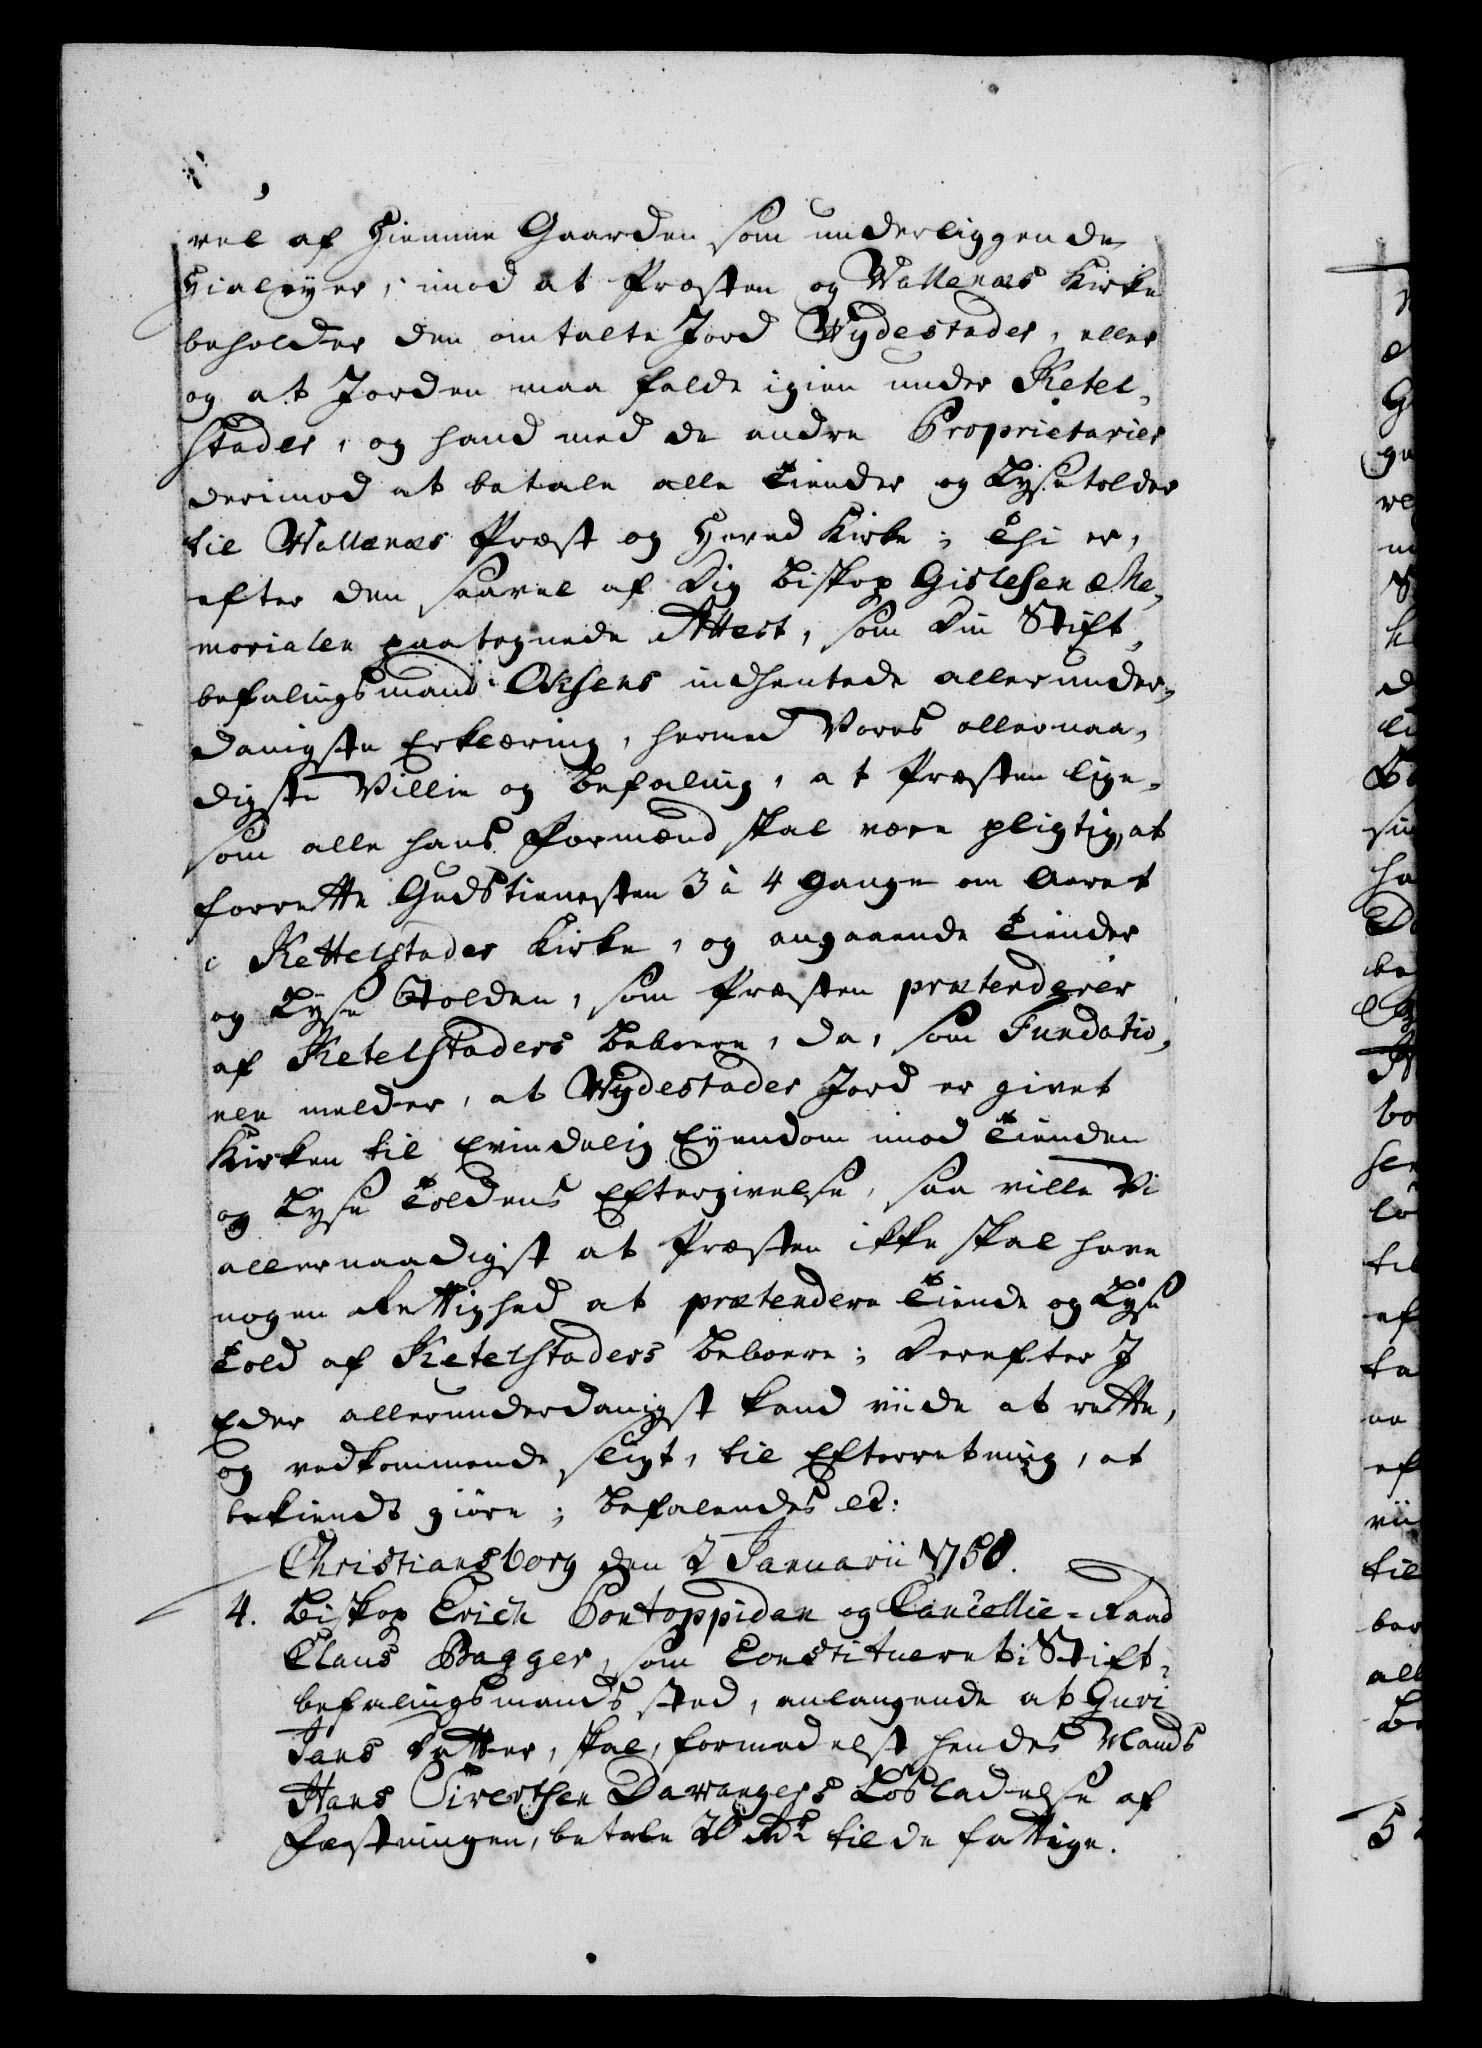 vel af Hiemme Gaarden som underliggende
Hialeyer, imod at Præsten og Wallenæs Kirke
beholder den omtalte Jord Wydestader, eller
og at Jorden maa falde igien under Ketel-
stader, og hand med de andre Proprietarier
derimod at betale alle Tiender og Lysetolder
til Wallenæs Præst og Hered Kirke; Thi er,
efter den saavel af Dig Biskop Gislesen Me-
morialen paategnede Attest, som Din Stift-
befalingsmand Oksens indhentede allerunder-
danigste Erklæring, hermed Vores allernaa-
digste Villie og Befaling, at Præsten lige-
som alle hans Formænd skal være pligtig, at
forrette Gudstienesten 3 à 4 Gange om Aaret
i Kettelstader Kirke, og angaaende Tiender
og Lyse Tolden, som Præsten prætenderer
af Ketelstaders Beboere, da, som Fundatio-
nen melder, at Wydestader Jord er givet
Kirken til Evindelig Eyendom imod Tienden
og Lyse Toldens Eftergivelse, saa ville Vi
allernaadigst at Præsten ikke skal have
nogen Rettighed at prætendere Tiende og Lyse
Told af Ketelstaders Beboere; Derefter I
Eder allerunderdanigst kand viide at rette,
og vedkommende sligt, til Efterretning, at
bekiendt giøre; Befalendes etc:
Christiansborg den 2 Januarii 1758.
4. Biskop Erich Pontoppidan og Cancellie-Raad
Claus Bagger, som Constitueret i Stift-
befalingsmands sted, anlangende at Guri
Jans Datter, skal, formedelst hendes Mands
Hans Sivertsen Davangers Løsladelse af
Fæstningen, betale 20 Rdr til de fattige.